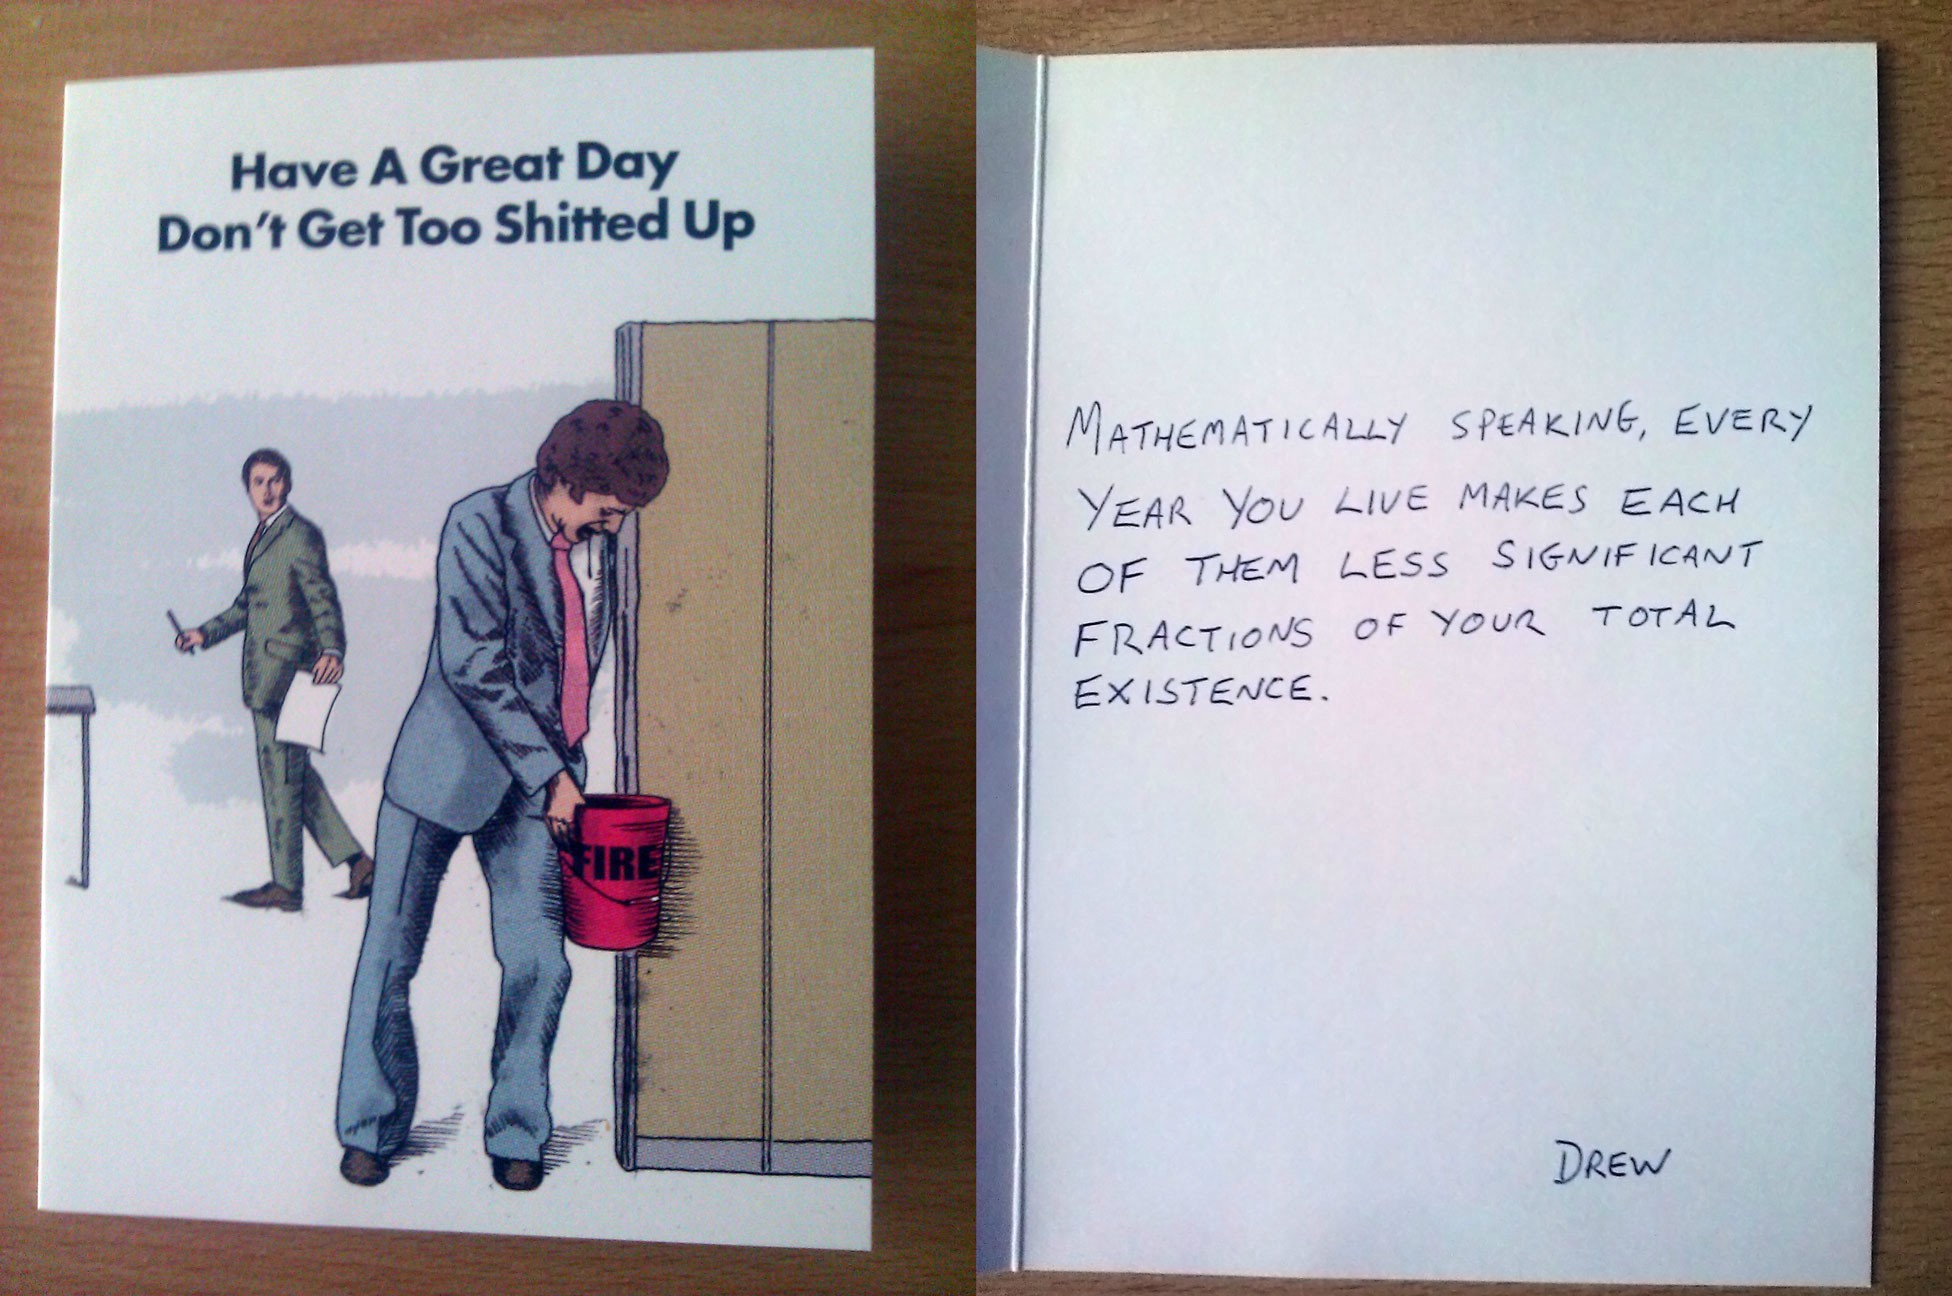 Have A Great Day
Don't Get Too Shitted Up
FIRE
MATHEMATICALLY SPEAKING, EVERY
YEAR YOU LIVE MAKES EACH
OF THEM LESS SIGNIFICANT
FRACTIONS OF YOUR TOTAL
EXISTENCE.
DREW